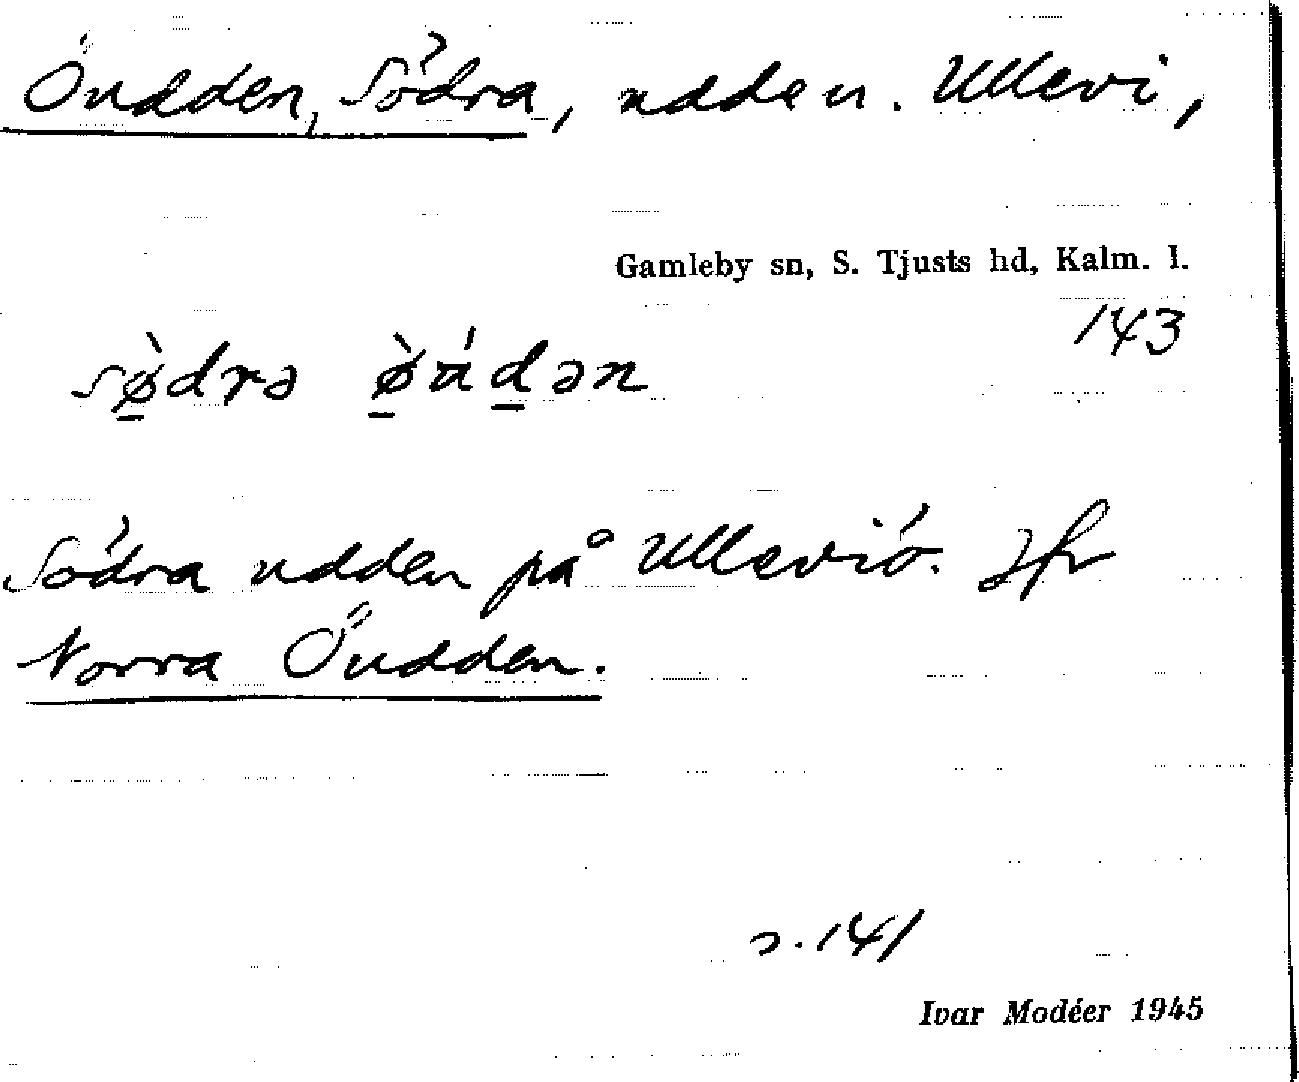 Öudden, Södra, udden. Ullevi,
Gamleby sn, S. Tjusts hd, Kalm. l.
143
sø̱̀drə ø̱̀úḏən
Södra udden på Ulleviö. Jfr
Norra Öudden.
s. 141
Ivar Modéer 1945